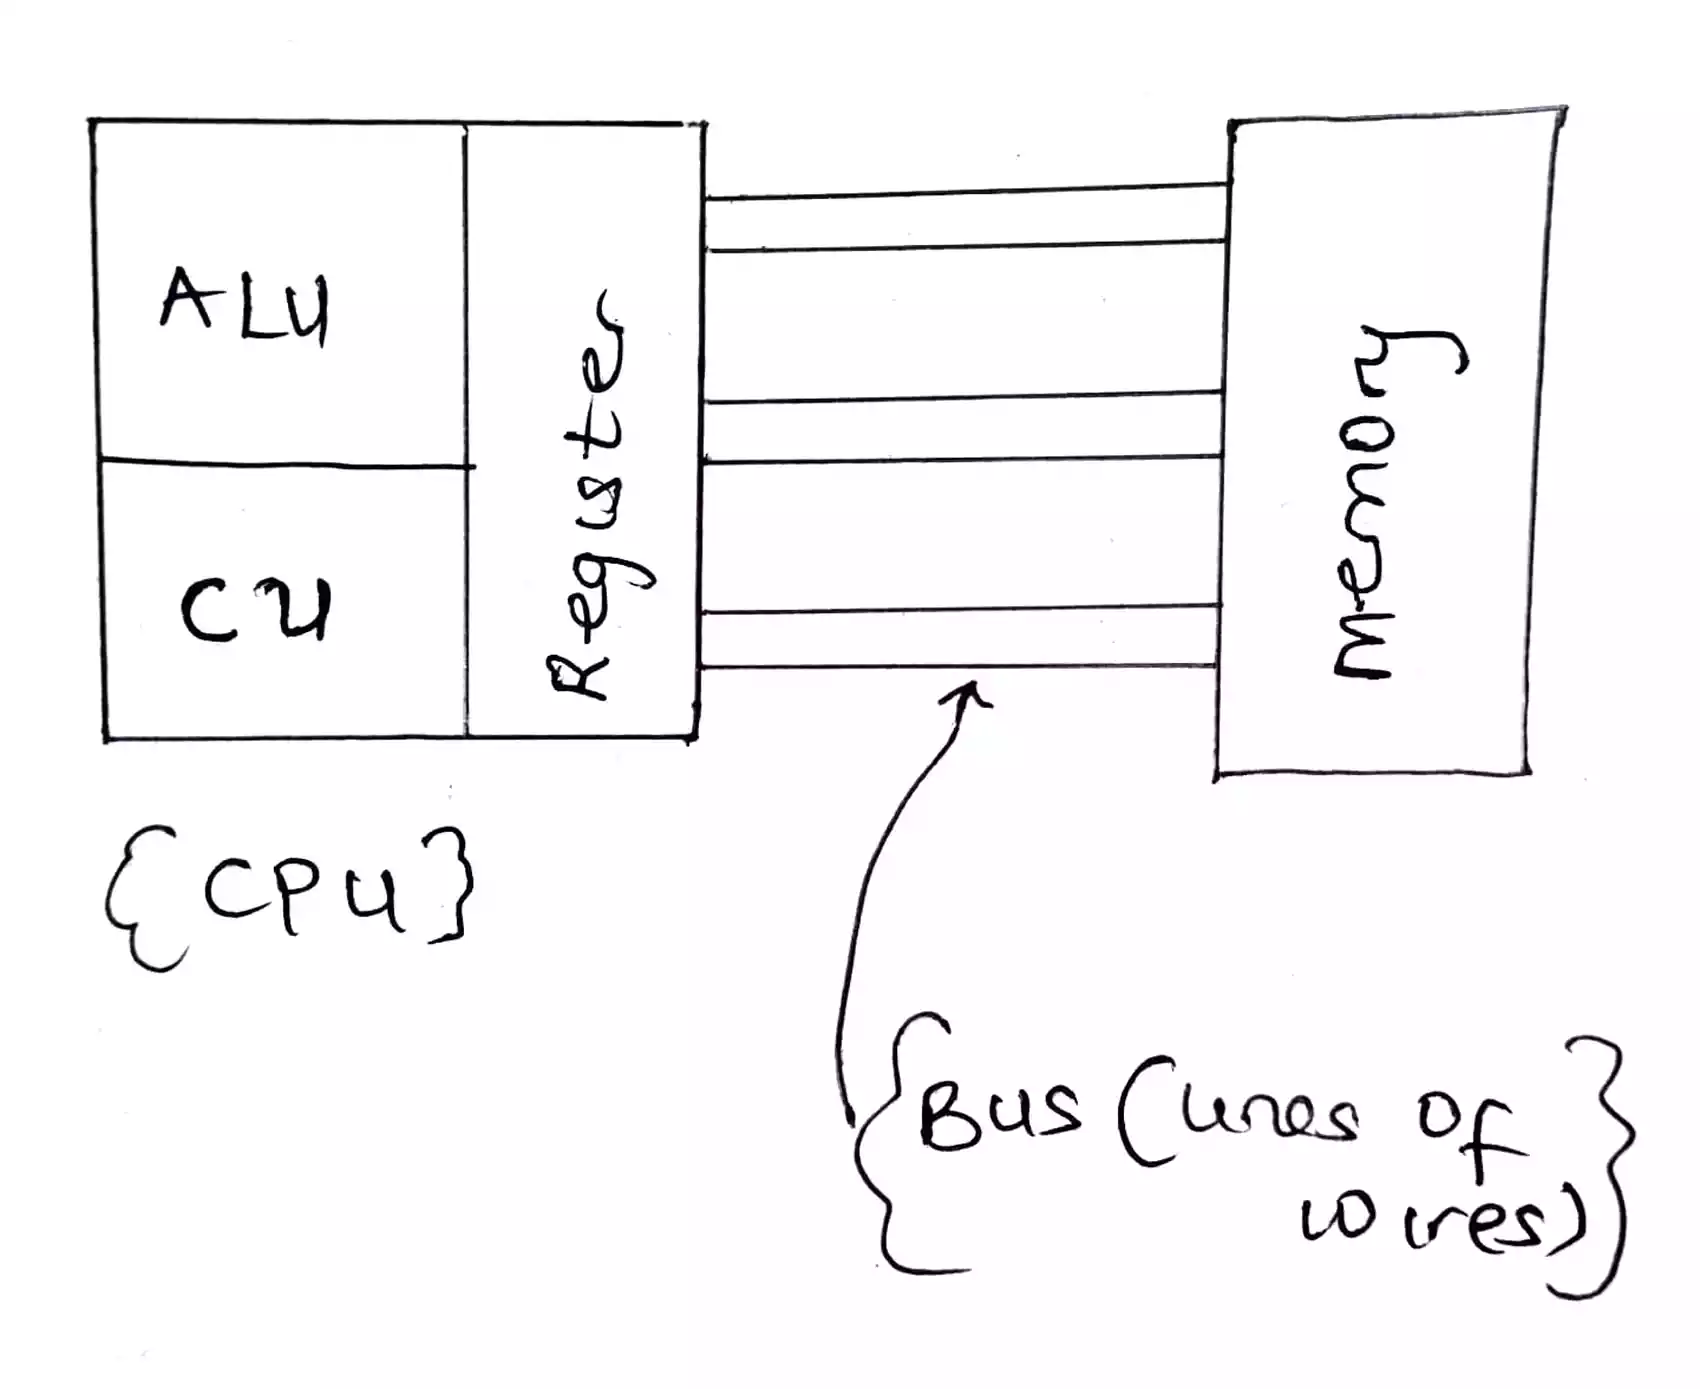 ALU
Register
CU
Memory
{CPU}
{Bus (lines of
wires)}